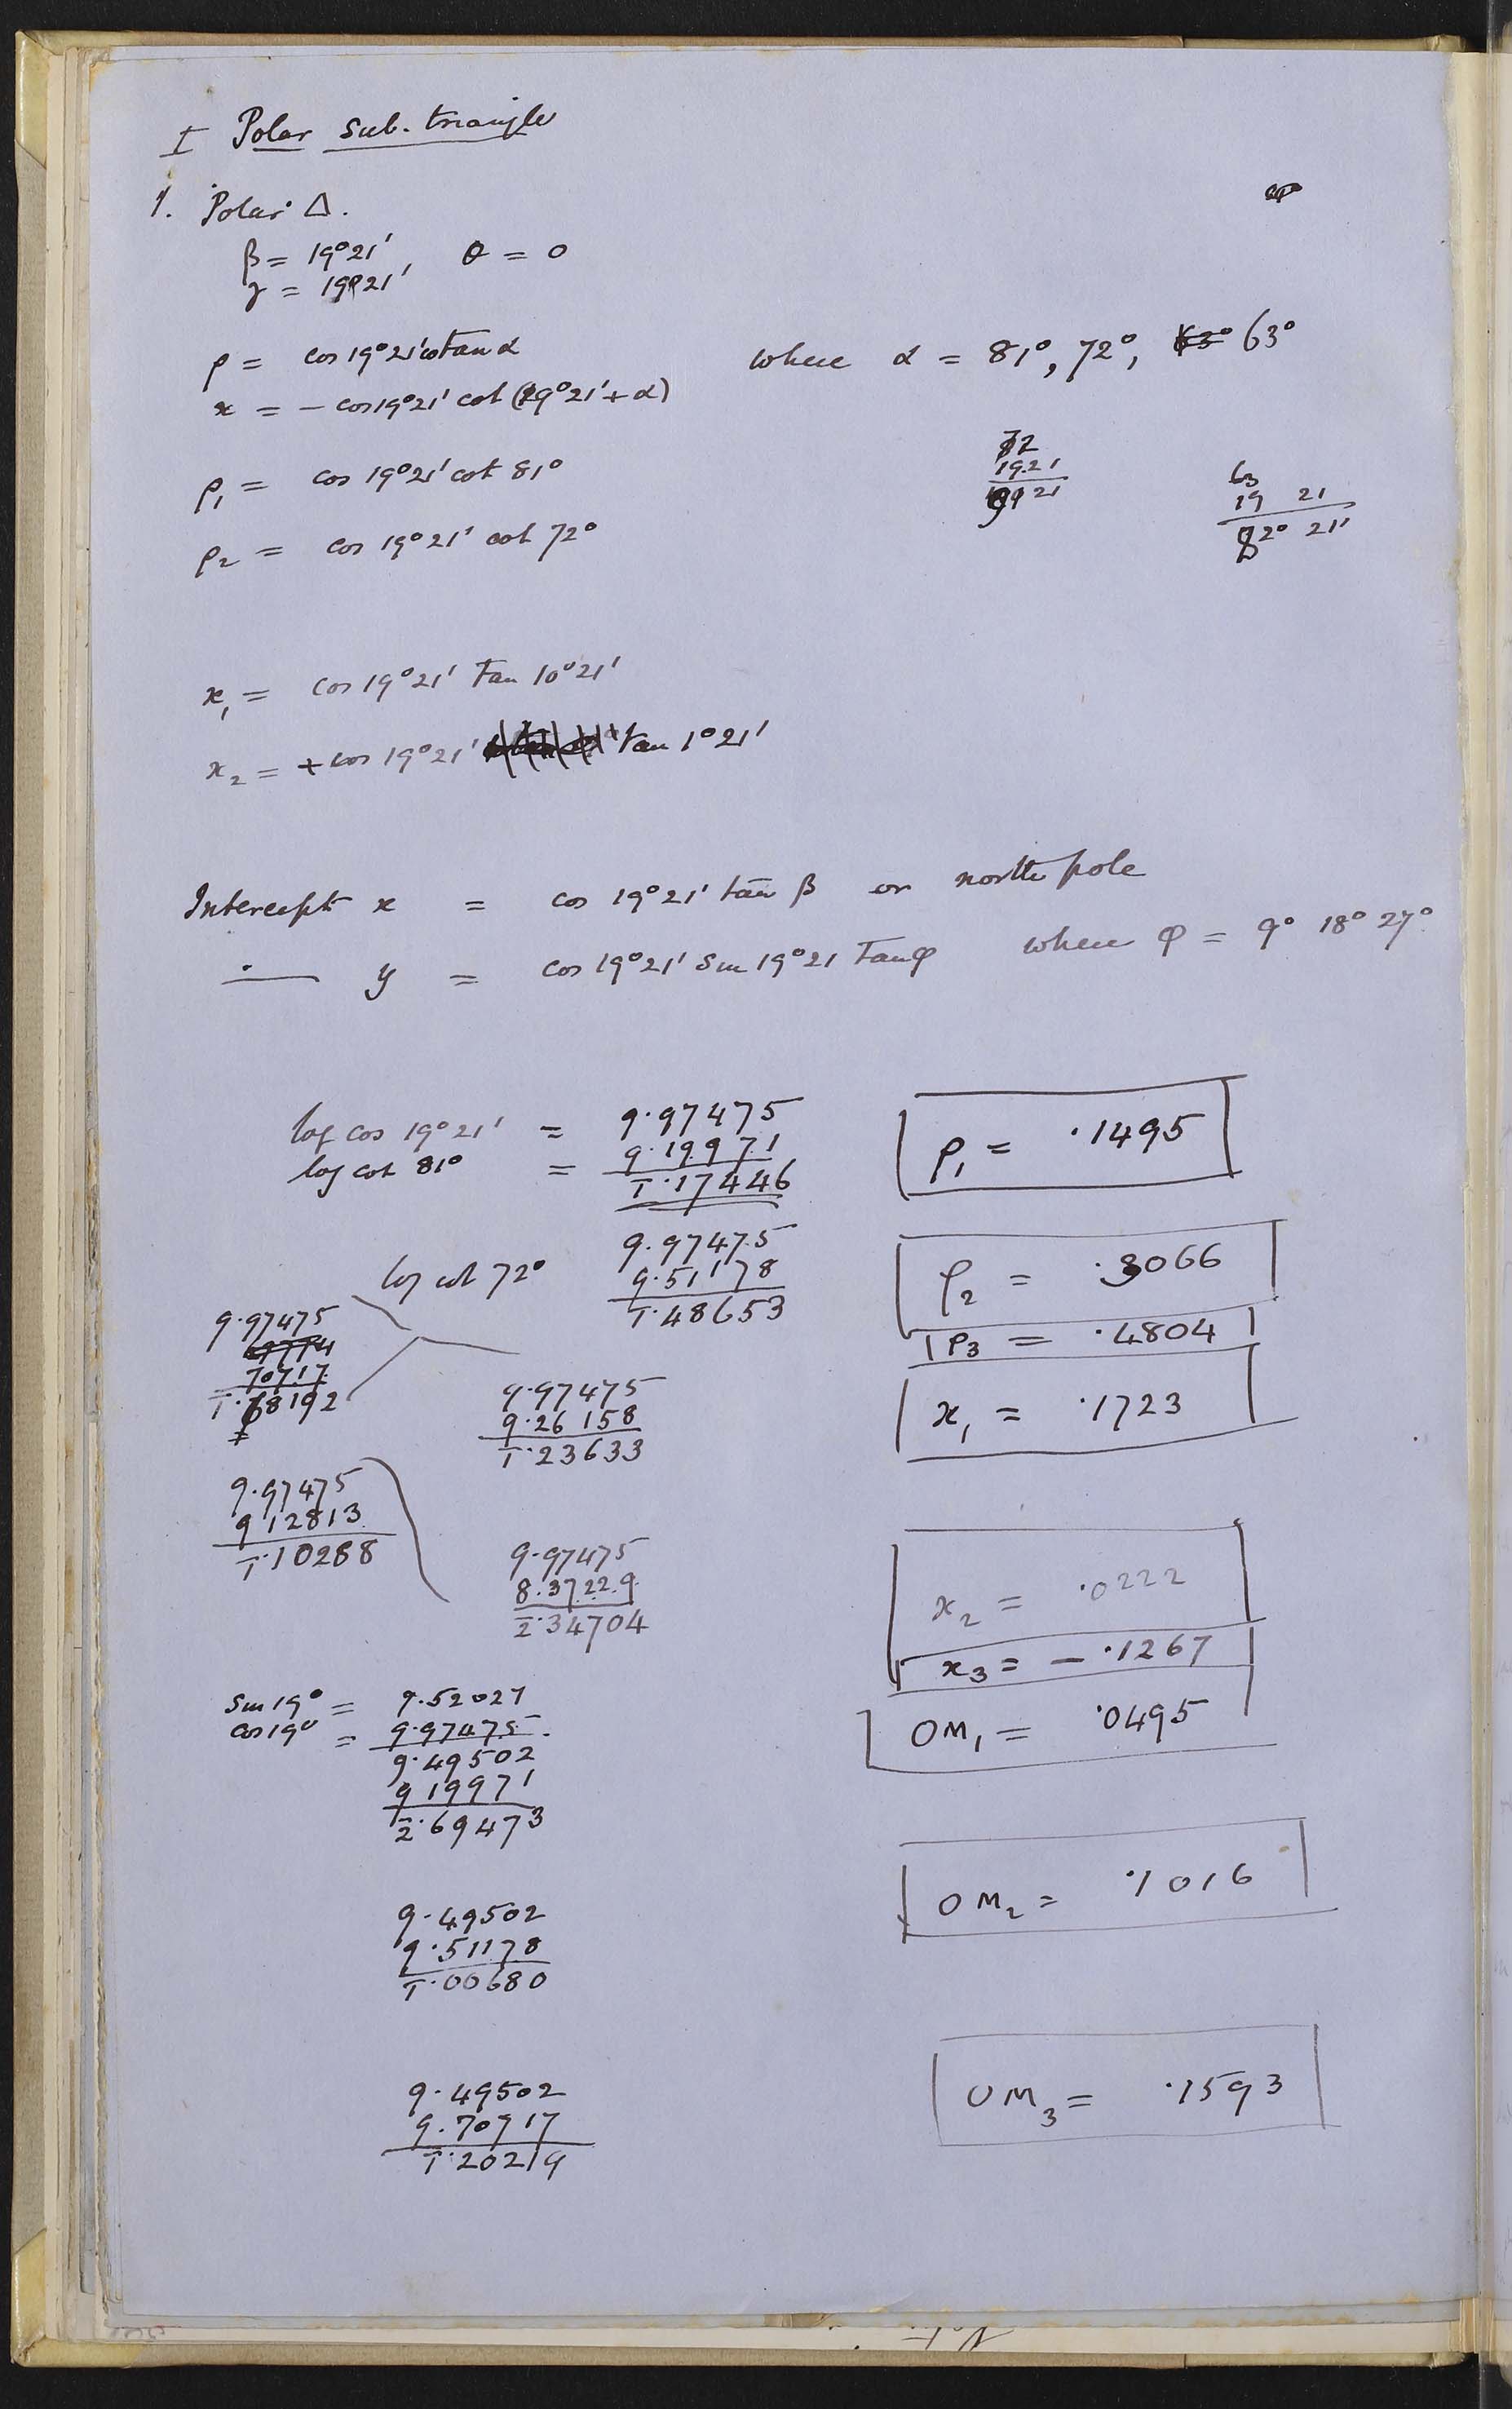 I Polar sub-triangle
1. Polar Δ.
β = 19°21', θ = 0
γ = 19°21'
ρ = cos 19°21' cotan α where α = 81°, 72°, 63° 63°
x = - cos 19°21' cot (19°21' + α)
72
19.21
91 21
63
19 21
82° 21'
ρ₁ = cos 19°21' cot 81°
ρ₂ = cos 19°21' cot 72°
x₁ = cos 19°21' tan 10°21'
x₂ = + cos 19°21' tan 1°21'
Intercept x = cos 19°21' tan β on north pole
y = cos 19°21' sin 19°21 tan φ where φ = 9° 18° 27°
log cos 19°21' = 9.97475
log cot 81° = 9.19971
T̄.17446
ρ₁ = .1495
log cot 72°
9.97475
9.51178
T̄.48653
ρ₂ = .3066
ρ₃ = .4804
9.97475
70717
T̄.68192
9.97475
9.26158
T̄.23633
x₁ = .1723
9.97475
9 12813
T̄.10288
9.97475
8.37229
2̄.34704
x₂ = .0222
x₃ = - .1267
sin 19° = 9.52027
cos 19° = 9.97475
9.49502
9 19971
2̄.69473
OM₁ = .0495
9.49502
9.51178
T̄.00680
OM₂ = .1016
9.49502
9.70717
T̄.20219
OM₃ = .1593